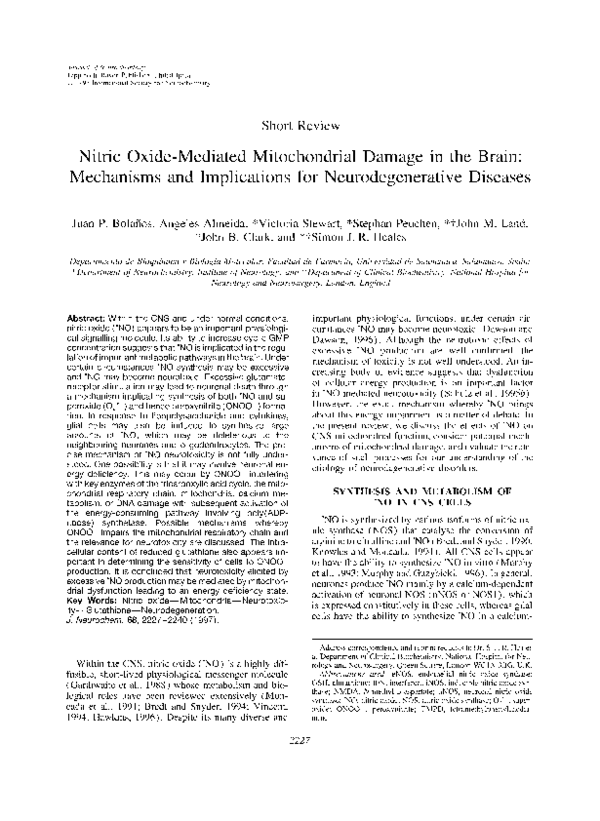 Journal of Neurochemistry
International Society for Neurochemistry
Short Review
Nitric Oxide-Mediated Mitochondrial Damage in the Brain:
Mechanisms and Implications for Neurodegenerative Diseases
Juan P. Bolaños, Angeles Almeida, *Victoria Stewart, *Stephan Peuchen, *†John M. Land,
*John B. Clark, and *†Simon J. R. Heales
Departamento de Bioquímica y Biología Molecular, Facultad de Farmacia, Universidad de Salamanca, Salamanca, Spain;
*Department of Neurochemistry, Institute of Neurology, and †Department of Clinical Biochemistry, National Hospital for
Neurology and Neurosurgery, London, England
Abstract: Within the CNS and under normal conditions,
nitric oxide (•NO) appears to be an important physiologi-
cal signalling molecule. Its ability to increase cyclic GMP
concentration suggests that •NO is implicated in the regu-
lation of important metabolic pathways in the brain. Under
certain circumstances •NO synthesis may be excessive
and •NO may become neurotoxic. Excessive glutamate-
receptor stimulation may lead to neuronal death through
a mechanism implicating synthesis of both •NO and su-
peroxide (O2•−) and hence peroxynitrite (ONOO−) forma-
tion. In response to lipopolysaccharide and cytokines,
glial cells may also be induced to synthesize large
amounts of •NO, which may be deleterious to the
neighbouring neurones and oligodendrocytes. The pre-
cise mechanism of •NO neurotoxicity is not fully under-
stood. One possibility is that it may involve neuronal en-
ergy deficiency. This may occur by ONOO− interfering
with key enzymes of the tricarboxylic acid cycle, the mito-
chondrial respiratory chain, mitochondrial calcium me-
tabolism, or DNA damage with subsequent activation of
the energy-consuming pathway involving poly(ADP-
ribose) synthetase. Possible mechanisms whereby
ONOO− impairs the mitochondrial respiratory chain and
the relevance for neurotoxicity are discussed. The intra-
cellular content of reduced glutathione also appears im-
portant in determining the sensitivity of cells to ONOO−
production. It is concluded that neurotoxicity elicited by
excessive •NO production may be mediated by mitochon-
drial dysfunction leading to an energy deficiency state.
Key Words: Nitric oxide—Mitochondria—Neurotoxic-
ity—Glutathione—Neurodegeneration.
J. Neurochem. 68, 2227–2240 (1997).
Within the CNS, nitric oxide (•NO) is a highly dif-
fusible, short-lived physiological messenger molecule
(Garthwaite et al., 1988) whose metabolism and bio-
logical roles have been reviewed extensively (Mon-
cada et al., 1991; Bredt and Snyder, 1994; Vincent,
1994; Hawkins, 1996). Despite its many diverse and
important physiological functions, under certain cir-
cumstances •NO may become neurotoxic (Dawson and
Dawson, 1996). Although the neurotoxic effects of
excessive •NO production are well confirmed, the
mechanism of toxicity is not well understood. An in-
creasing body of evidence suggests that dysfunction
of cellular energy production is an important factor
in •NO-mediated neurotoxicity (Schulz et al.,
However, the exact mechanism whereby •NO brings
about this energy impairment is a matter of debate. In
the present review, we discuss the effects of •NO on
CNS mitochondrial function, consider potential mech-
anisms of mitochondrial damage, and evaluate the rele-
vance of such processes for our understanding of the
etiology of neurodegenerative disorders.
SYNTHESIS AND METABOLISM OF
•NO IN CNS CELLS
•NO is synthesized by various isoforms of nitric ox-
ide synthase (NOS) that catalyse the conversion of
arginine to citrulline and •NO (Bredt and Snyder, 1990;
Knowles and Moncada, 1994). All CNS cells appear
to have the ability to synthesize •NO in vitro (Murphy
et al., 1993; Murphy and Grzybicki, 1996). In general,
neurones produce •NO mainly by a calcium-dependent
activation of neuronal NOS (nNOS or NOS1), which
is expressed constitutively in these cells, whereas glial
cells have the ability to synthesize •NO in a calcium-
Address correspondence and reprint requests to Dr. S. J. R. Heales
at Department of Clinical Biochemistry, National Hospital for Neu-
rology and Neurosurgery, Queen Square, London WC1N 3BG, U.K.
Abbreviations used: eNOS, endothelial nitric oxide synthase;
GSH, glutathione; interferon; iNOS, inducible nitric oxide syn-
thase; NMDA, N-methyl-D-aspartate; nNOS, neuronal nitric oxide
synthase; •NO, nitric oxide; NOS, nitric oxide synthase; O2•−, super-
oxide; ONOO−, peroxynitrite; TMPD, tetramethylphenylenedia-
mine.
2227